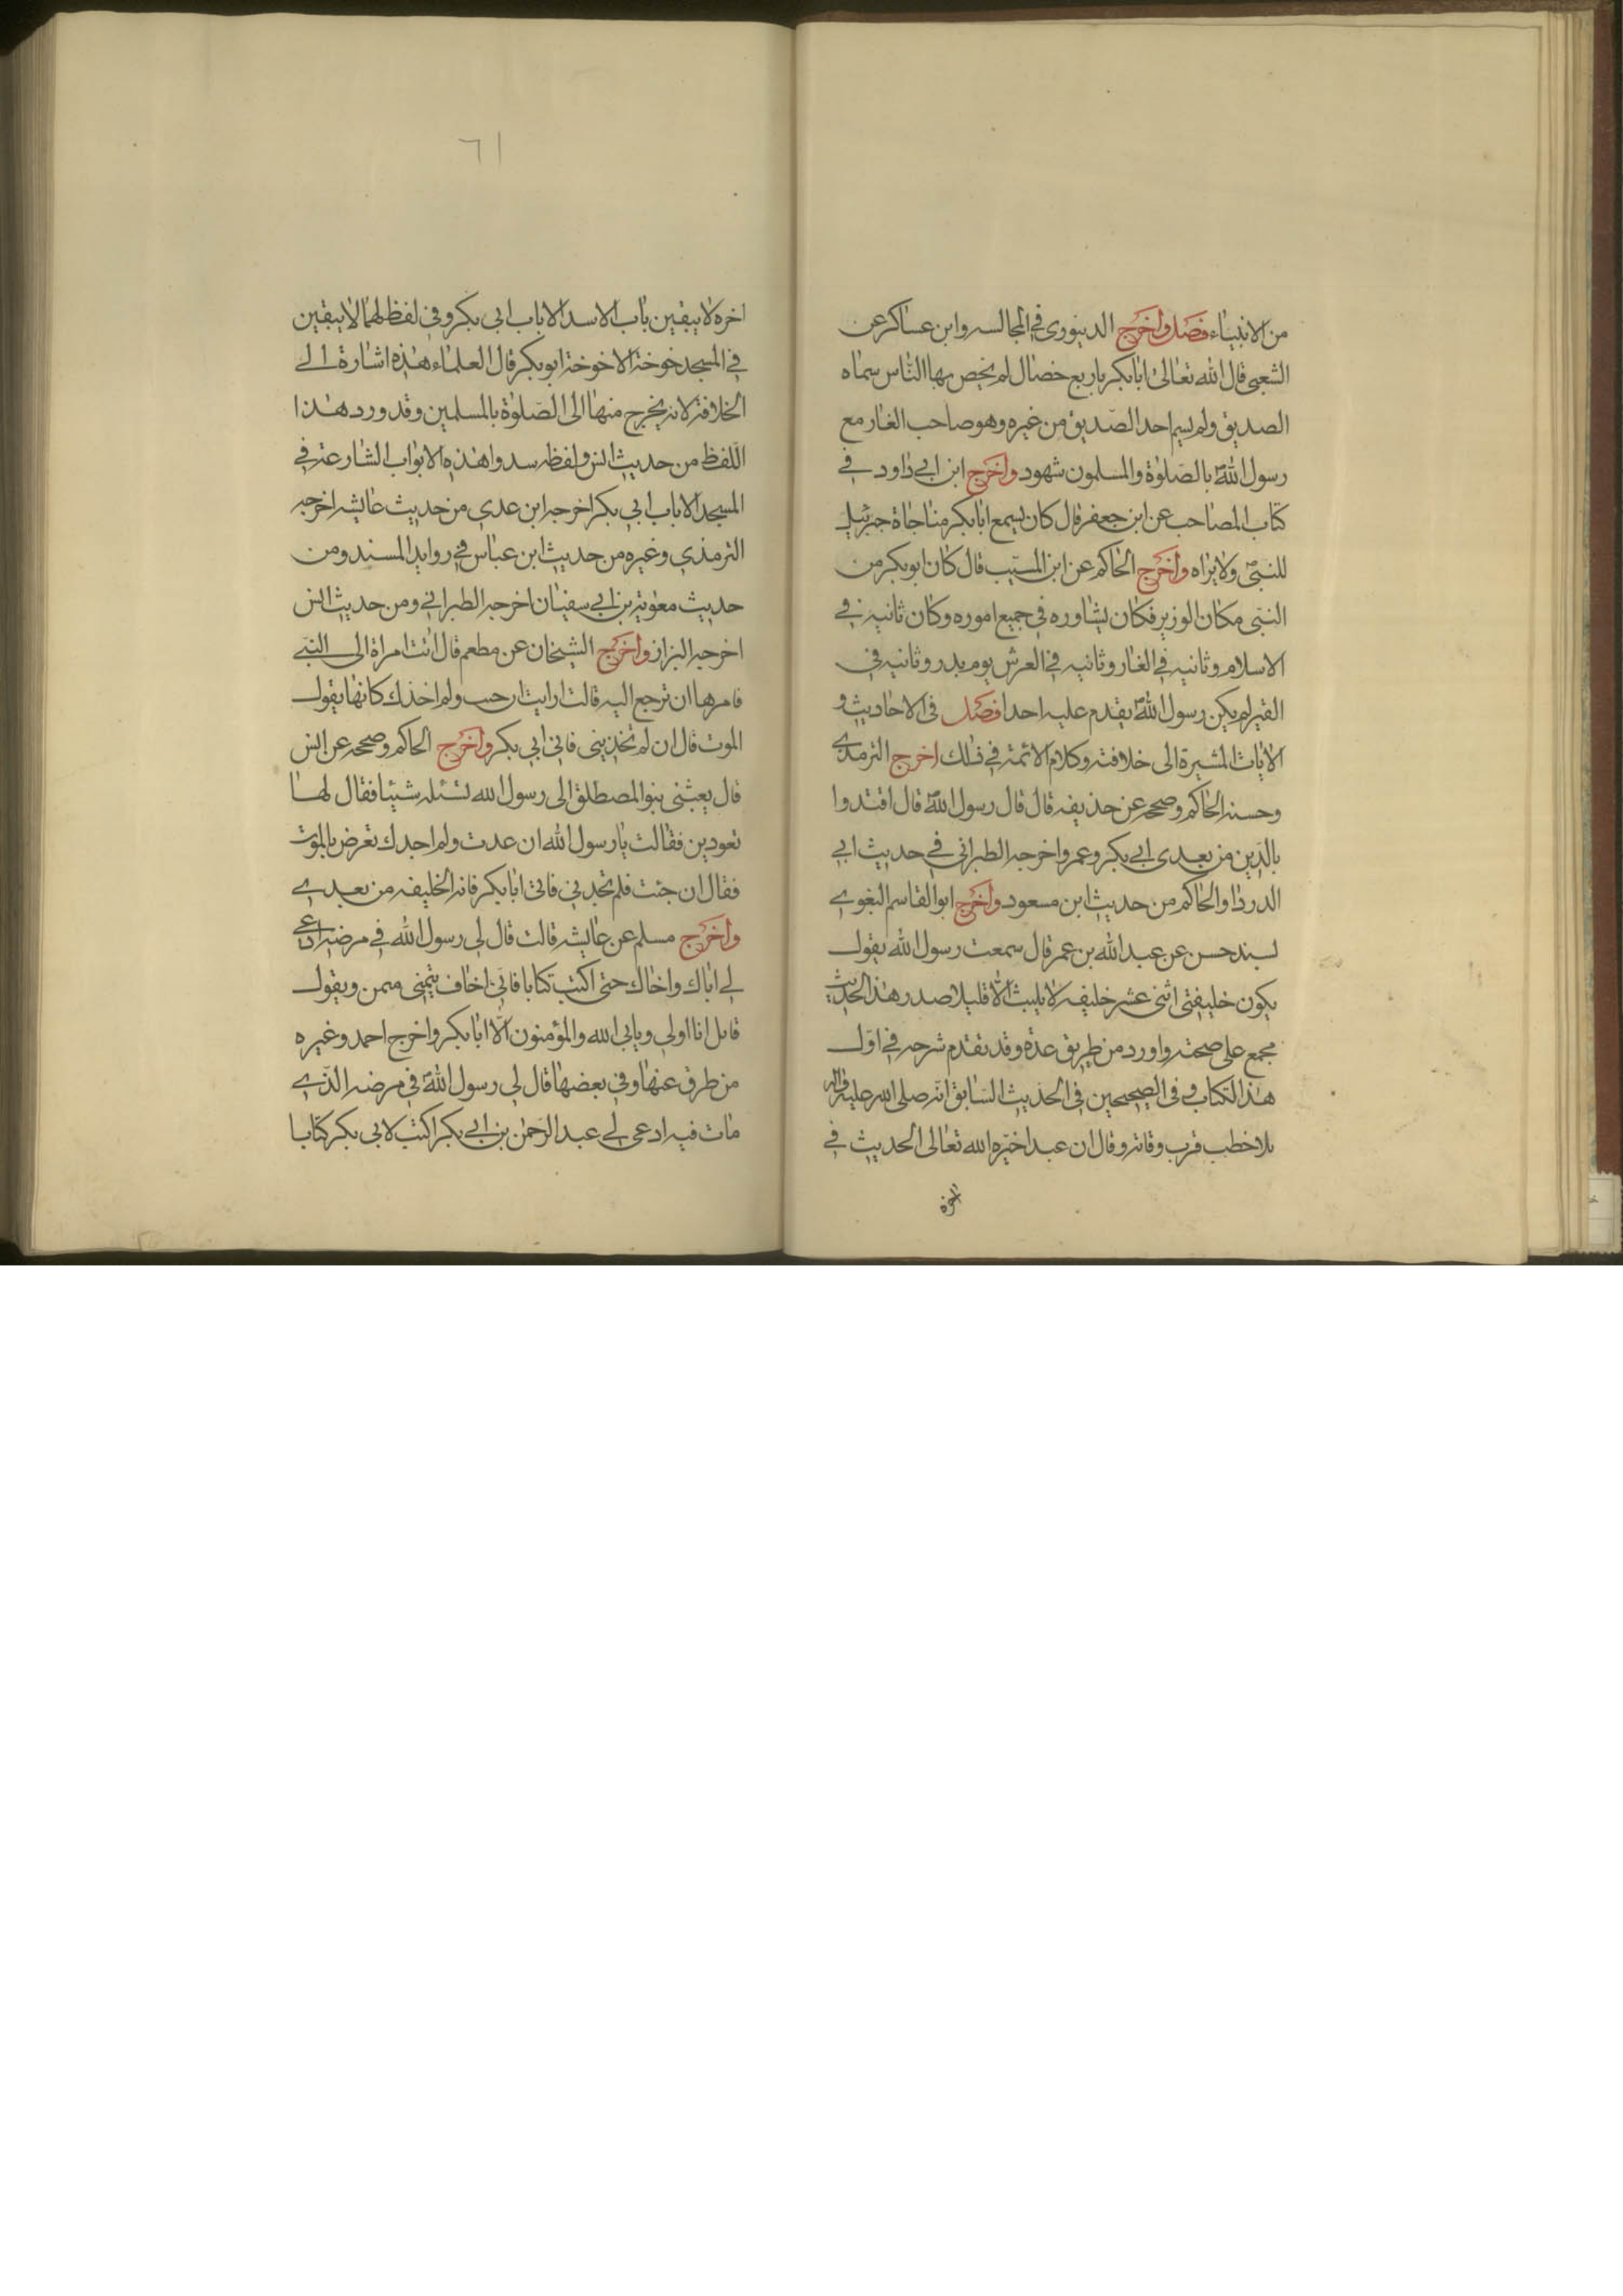 من الانبياء فصل واخرج الدينوري في المجالسه وابن عساكر عن
الشعبي قال الله تعالى ابابكر باربع خصال لم يخص بها الناس سماه
الصديق ولم يسم احد الصديق من غيره وهو صاحب الغار مع
رسول الله بالصلوة والمسلمون شهود واخرج ابن ابي داود في
كتاب المصاحب عن ابن جعفر قال كان يسمع ابابكر مناجاة جبرئيل
للنبي ولا يراه واخرج الحاكم عن ابن المسيب قال كان ابوبكر من
النبي مكان الوزير فكان يشاوره في جميع اموره وكان ثانيه في
الاسلام وثانيه في الغار وثانيه في العرش يوم بدر وثانيه في
القبر لم يكن رسول الله يقدم عليه احدا فصل في الاحاديث و
الايات المشيرة الى خلافته وكلام الائمة في ذلك اخرج الترمذي
وحسنه الحاكم وصححه عن حذيفه قال قال رسول الله قال اقتدوا
بالذين من بعدي ابي بكر وعمر واخرجه الطبراني في حديث ابي
الدرداء والحاكم من حديث ابن مسعود واخرج ابوالقاسم البغوي
بسند حسن عن عبد الله بن عمر قال سمعت رسول الله يقول
يكون خليفتي اثني عشر خليفه لا يلبث الا قليلا صدر هذا الحديث
مجمع على صحته واورد من طريق عدة وقد تقدم شرحه في اول
هذا الكتاب وفي الصحيحين في الحديث السابق انه صلى الله عليه واله
بلا خطب قرب وفاته وقال ان عبدا خيره الله تعالى الحديث في
اخره
٦١
اخره لا يبقين باب الا سد الا باب ابي بكر وفي لفظ لهما لا يبقين
في المسجد خوخة الا خوخة ابوبكر قال العلماء هذه اشارة الى
الخلافة لانه يخرج منها الى الصلوة بالمسلمين وقد ورد هذا
اللفظ من حديث انس ولفظه سدوا هذه الابواب الشارعة في
المسجد الا باب ابي بكر اخرجه ابن عدي من حديث عايشه اخرجه
الترمذي وغيره من حديث ابن عباس في زوايد المسند ومن
حديث معوية بن ابي سفيان اخرجه الطبراني ومن حديث انس
اخرجه البزاز واخرج الشيخان عن مطعم قال اتت امراة الى النبي
فامرها ان ترجع اليه قالت ارايت ان جئت ولم اجدك كانها يقول
الموت قال ان لم تجديني فاتي ابي بكر واخرج الحاكم وصححه عن انس
قال بعثني بنو المصطلق الى رسول الله نسئله شيئا فقال لها
تعودين فقالت يا رسول الله ان عدت ولم اجدك تعرض بالموت
فقال ان جئت فلم تجديني فاتي ابابكر فانه الخليفه من بعدي
واخرج مسلم عن عايشه قالت قال لي رسول الله في مرضه ادعي
لي اباك واخاك حتى اكتب كتابا فاني اخاف يتمنى متمن ويقول
قائل انا اولى ويابى الله والمؤمنون الا ابابكر واخرج احمد وغيره
من طرق عنها وفي بعضها قال لي رسول الله في مرضه الذي
مات فيه ادعي لي عبد الرحمن بن ابي بكر اكتب لابي بكر كتابا